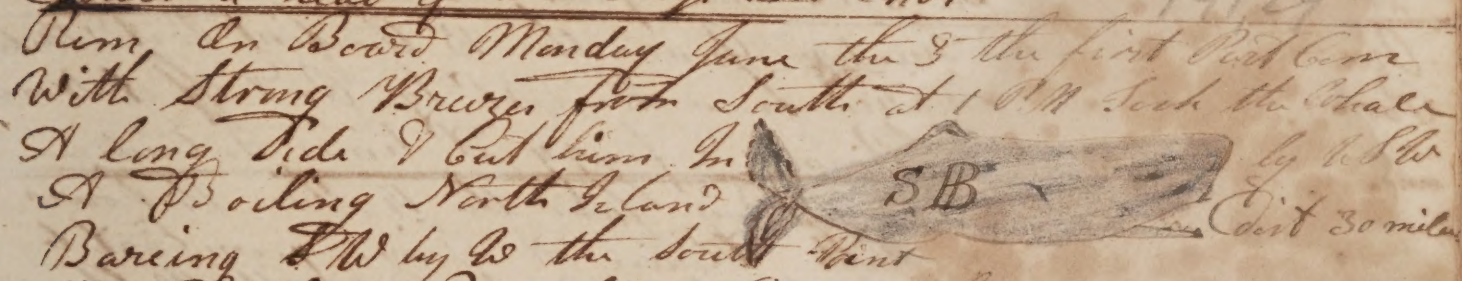 Rem, On Board Monday June the 3 the first Part Com
With Strong Brezes from South at 1 PM Took the Whale
A long Side & Cut him In by WSW
SBB
A Boiling North Island dist 30 miles
Bareing SW by W the South Point